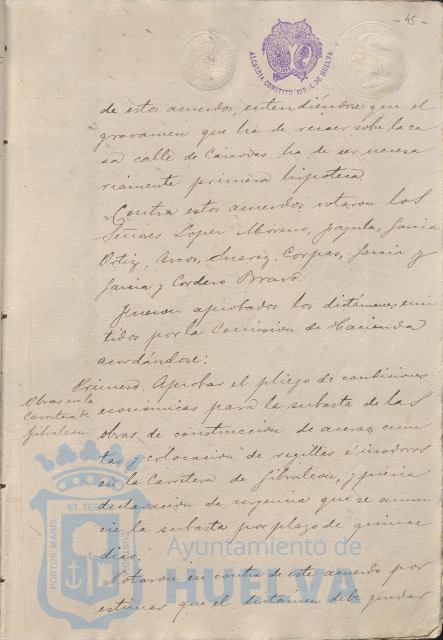 - 45 -
ALCALDIA CONSTITUCIONAL DE HUELVA
de estos acuerdos, entendiéndose que el
gravamen que ha de recaer sobre la ca
sa calle de Cánovas ha de ser necesa
riamente primera hipoteca.
Contra estos acuerdos votaron los
Señores Lopez Moreno, Jáques, Garcia
Ortiz, Arcos, Suarez, Corpas, Garcia y
Garcia y Cordero Bravo.
Fueron aprobados los dictámenes emi
tidos por la Comision de Hacienda
acordándose:
Obras en la
Carretera de
Gibraleon
Primero. Aprobar el pliego de condiciones
económicas para la subasta de las
obras de construccion de aceras, cune
tas y colocacion de regillas é inodoros
en la Carretera de Gibraleon, y prévia
declaracion de urgencia que se anun
cie la subasta por plazo de quince
dias.
Votaron en contra de este acuerdo por
estimar que el dictamen debe quedar
PORTUS MARIS ET TERRAE CUSTODIA
Ayuntamiento de
HUELVA